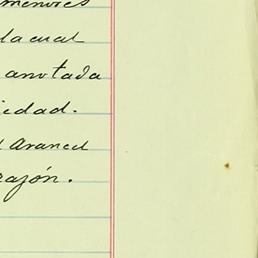 menores
la cual
anotada
iedad.
l Arancel
razón.